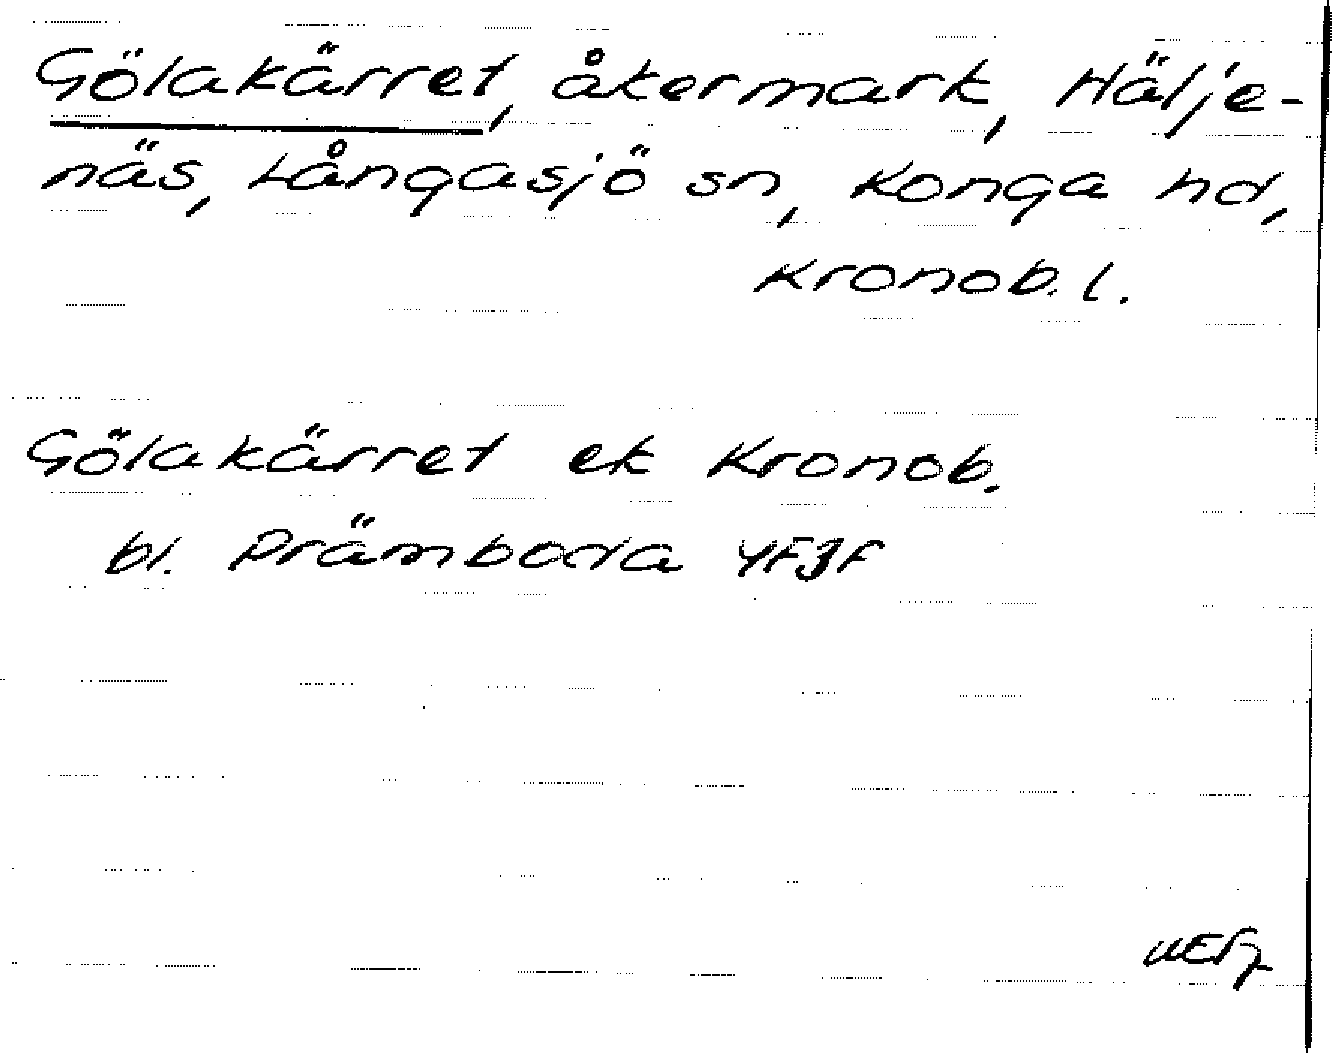 Gölakärret, åkermark, Hälje-
näs, Långasjö sn, Konga hd,
Kronob. l.
Gölakärret ek Kronob.
bl. Prämboda 4F3f